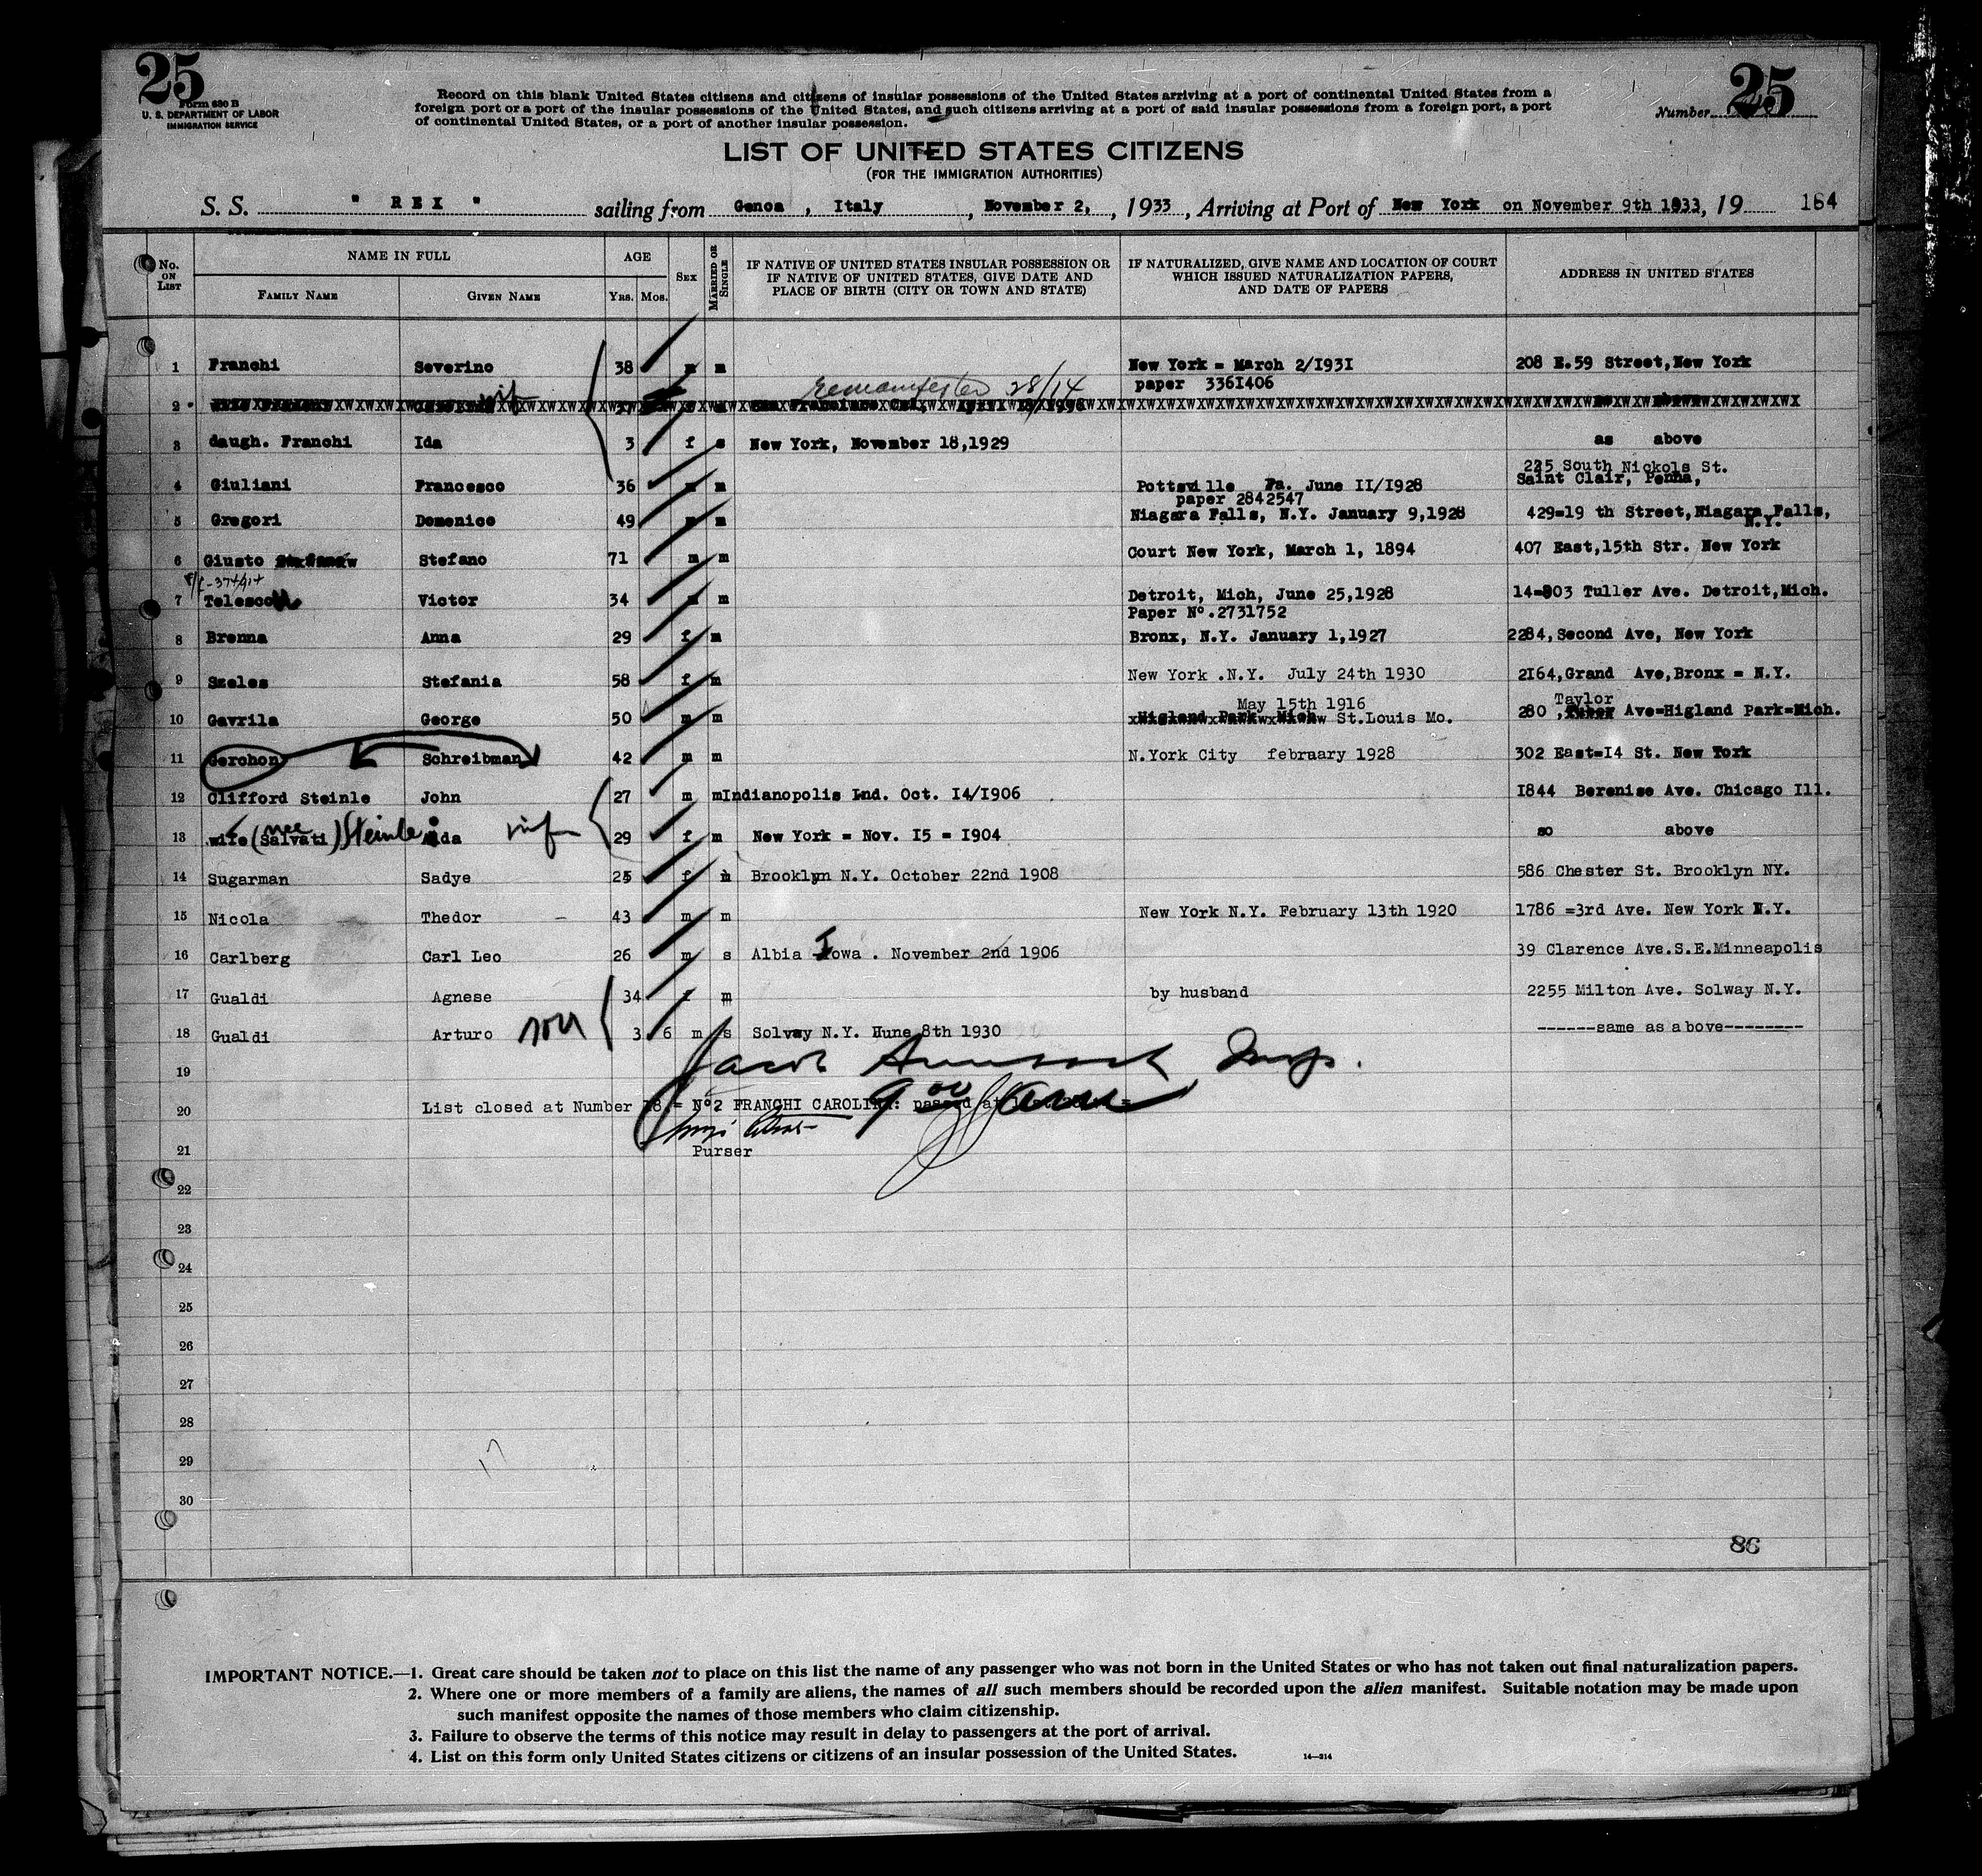 25
25
Form 630 B
U. S. DEPARTMENT OF LABOR
IMMIGRATION SERVICE
Record on this blank United States citizens and citizens of insular possessions of the United States arriving at a port of continental United States from a
foreign port or a port of the insular possessions of the United States, and such citizens arriving at a port of said insular possessions from a foreign port, a port
of continental United States, or a port of another insular possession.
Number
LIST OF UNITED STATES CITIZENS
(FOR THE IMMIGRATION AUTHORITIES)
S. S. " REX " sailing from Genoa , Italy , November 2, , 1933 , Arriving at Port of New York on November 9th 1933, 19 164
No. ON LIST
NAME IN FULL
FAMILY NAME
GIVEN NAME
AGE
YRS. MOS.
SEX
MARRIED OR SINGLE
IF NATIVE OF UNITED STATES INSULAR POSSESSION OR
IF NATIVE OF UNITED STATES, GIVE DATE AND
PLACE OF BIRTH (CITY OR TOWN AND STATE)
IF NATURALIZED, GIVE NAME AND LOCATION OF COURT
WHICH ISSUED NATURALIZATION PAPERS,
AND DATE OF PAPERS
ADDRESS IN UNITED STATES
1 Franchi Severino 38 m m New York = March 2/1931 208 E.59 Street,New York
paper 3361406
2 wife 28/14
3 daugh. Franchi Ida 3 f s New York, November 18,1929 as above
225 South Nickols St.
4 Giuliani Francesco 36 m m Pottsville Pa. June II/1928 Saint Clair, Penna,
paper 2842547
5 Gregori Domenico 49 m m Niagara Falls, N.Y. January 9,1928 429=19 th Street,Niagara Falls,
N.Y.
6 Giusto Stefano 71 m m Court New York, March 1, 1894 407 East,15th Str. New York
7 Telesco Victor 34 m m Detroit, Mich, June 25,1928 14=803 Tuller Ave. Detroit,Mich.
Paper Nº.2731752
8 Brenna Anna 29 f m Bronx, N.Y. January 1,1927 2284,Second Ave, New York
9 Szeles Stefania 58 f m New York .N.Y. July 24th 1930 2164,Grand Ave,Bronx = N.Y.
May 15th 1916 Taylor
10 Gavrila George 50 m m St.Louis Mo. 280 , Ave=Higland Park=Mich.
11 Gerchon Schreibman 42 m m N.York City febraary 1928 302 East=I4 St. New York
12 Clifford Steinle John 27 m m Indianopolis Ind. Oct. I4/1906 1844 Berenise Ave. Chicago Ill.
13 wife (nee Salvati) Steinle Ada wife 29 f m New York = Nov. I5 = 1904 so above
14 Sugarman Sadye 25 f m Brooklyn N.Y. October 22nd 1908 586 Chester St. Brooklyn NY.
15 Nicola Thedor 43 m m New York N.Y. February 13th 1920 1786 =3rd Ave. New York N.Y.
16 Carlberg Carl Leo 26 m s Albia Iowa . November 2nd 1906 39 Clarence Ave.S.E.Minneapolis
17 Gualdi Agnese 34 f m by husband 2255 Milton Ave. Solway N.Y.
18 Gualdi Arturo son 3 6 m s Solvay N.Y. Hune 8th 1930 ------same as above--------
19 Jacob Insp.
20 List closed at Number 18.= Nº2 FRANCHI CAROLINA: passed at
21 Purser
22
23
24
25
26
27
28
29
30
86
IMPORTANT NOTICE.—1. Great care should be taken not to place on this list the name of any passenger who was not born in the United States or who has not taken out final naturalization papers.
2. Where one or more members of a family are aliens, the names of all such members should be recorded upon the alien manifest. Suitable notation may be made upon
such manifest opposite the names of those members who claim citizenship.
3. Failure to observe the terms of this notice may result in delay to passengers at the port of arrival.
4. List on this form only United States citizens or citizens of an insular possession of the United States. 14—214